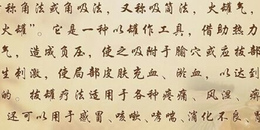 称角法或角吸法，又称吸筒法，火罐气，
火罐”。它是一种以罐作工具，借助热力
气，造成负压，使之吸附于腧穴或应拔部
生刺激，使局部皮肤充血、淤血，以达到
的。拔罐疗法适用于各种疼痛、风湿、痹
还可以用于感冒、咳嗽、哮喘、消化不良、胃